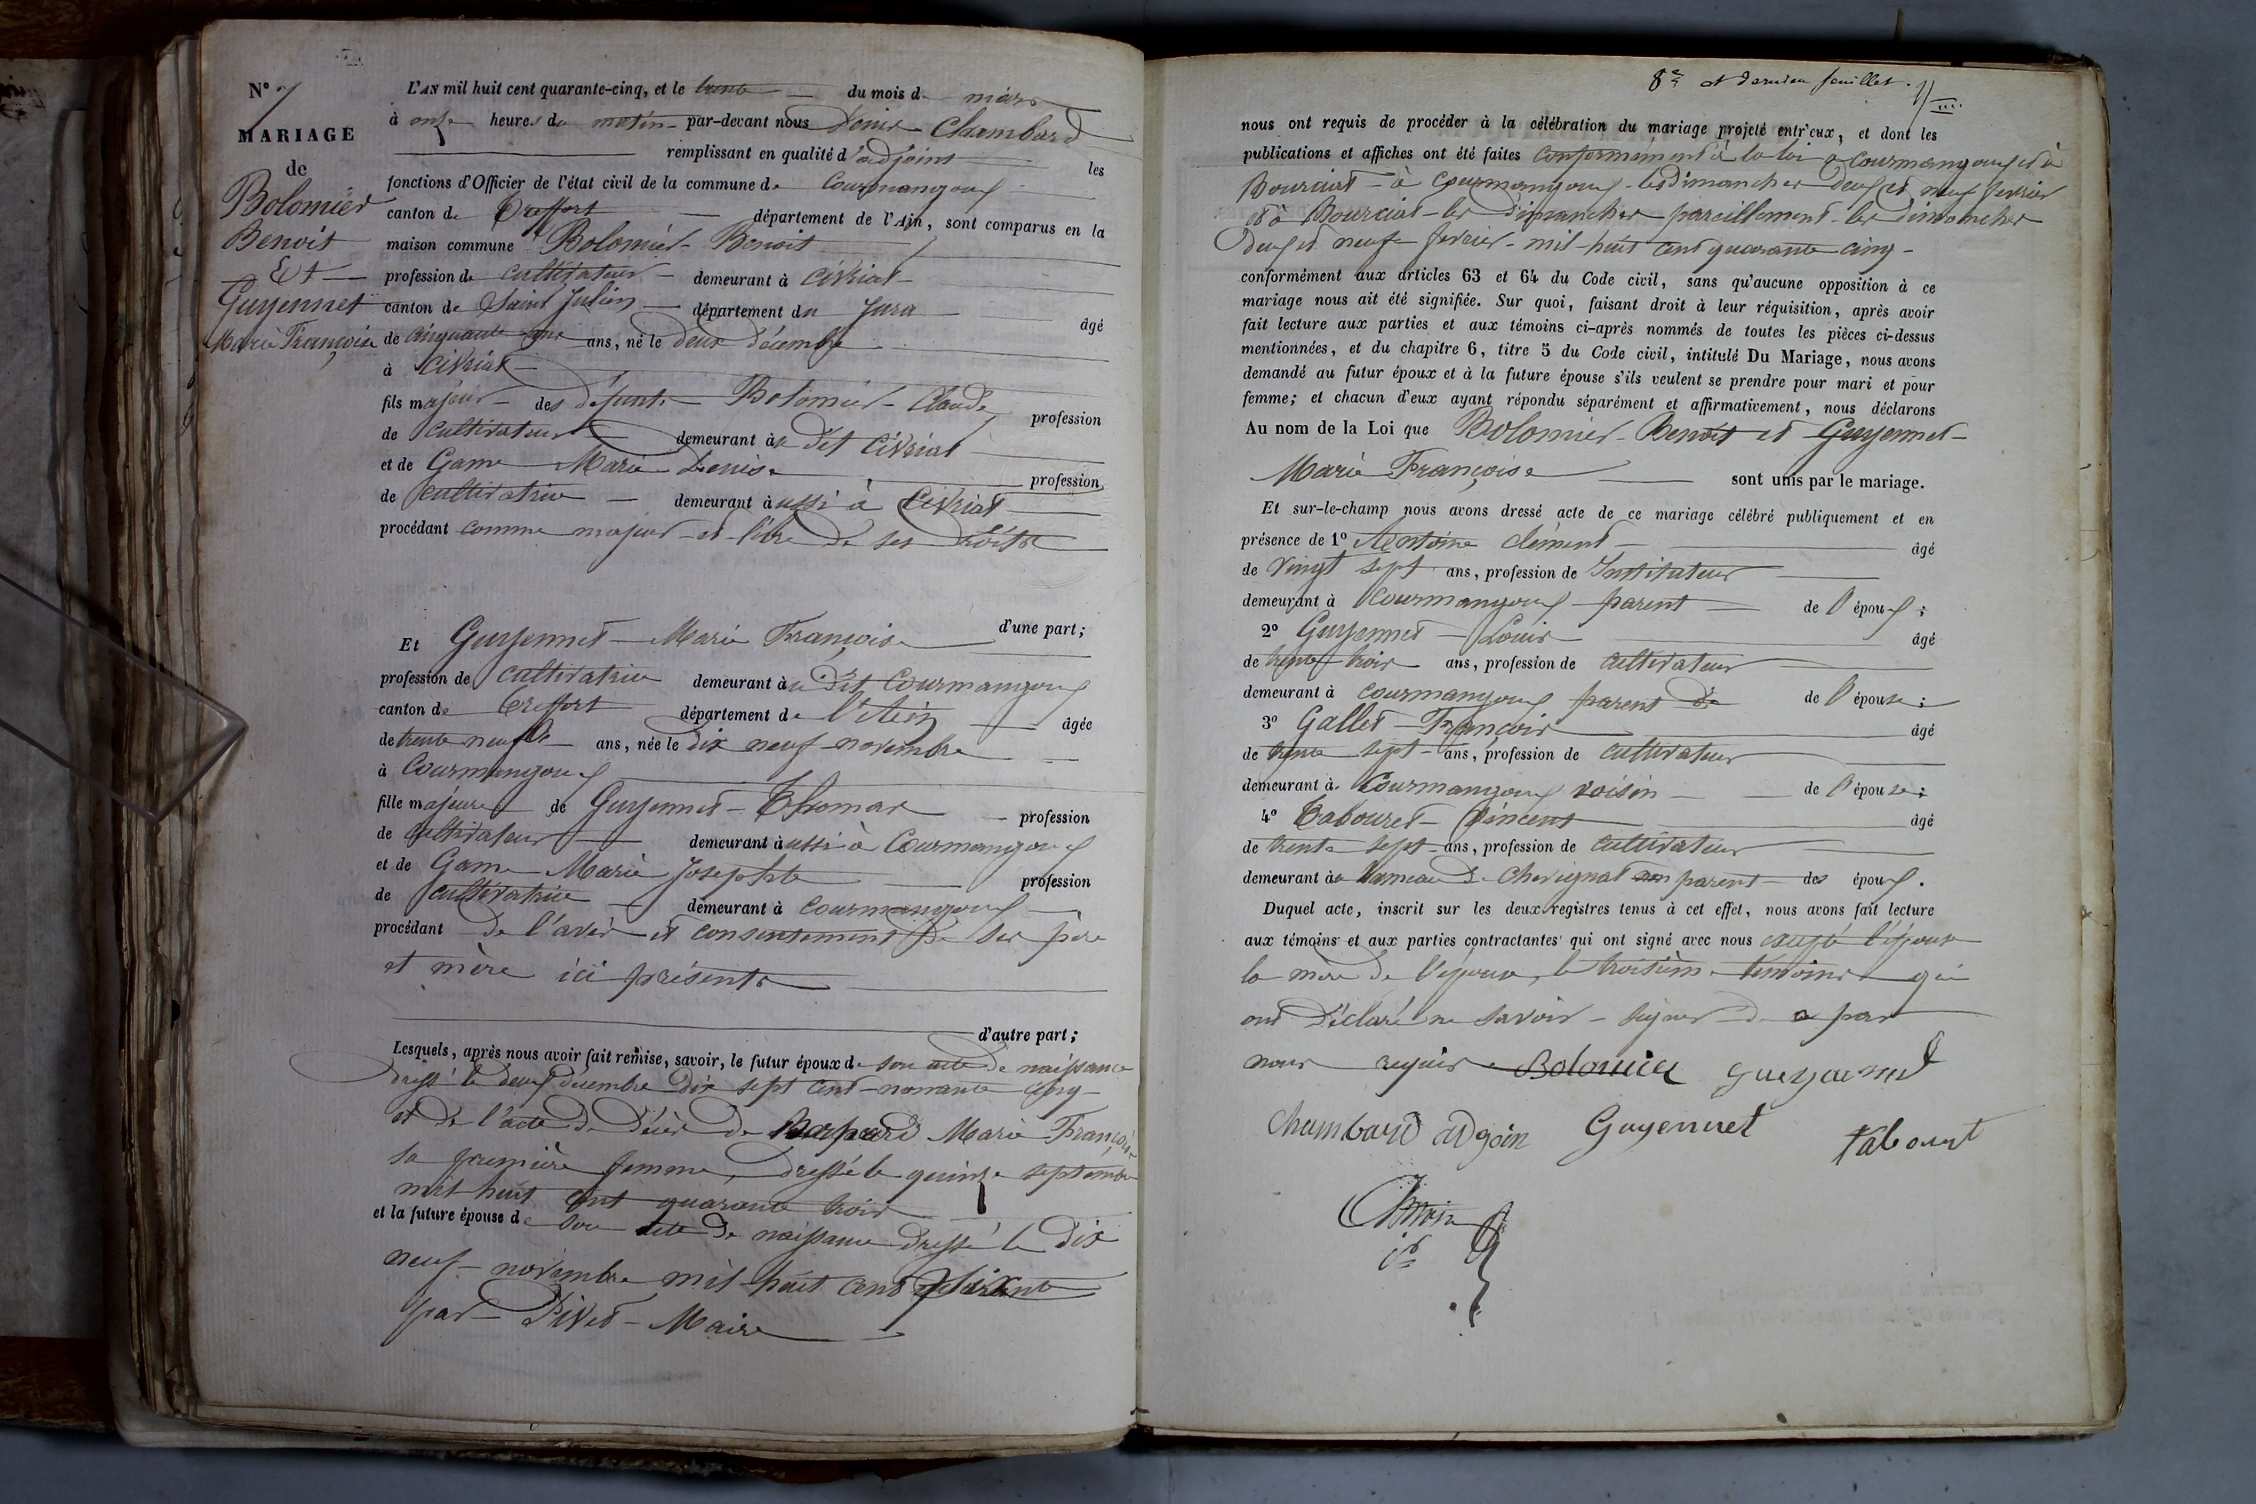 N° 7
MARIAGE
de
Bolomier
Benoit
Et
Guyennet
Marie Françoise
L'AN mil huit cent quarante-cinq, et le trente du mois de mars
à onze heures du matin par-devant nous Denis Chambard
remplissant en qualité d'adjoint les
fonctions d'Officier de l'état civil de la commune de Courmangoux
canton de Treffort département de l'Ain, sont comparus en la
maison commune Bolomier Benoit
profession de cultivateur demeurant à Civriat
canton de Saint Julien département du Jura
âgé
de cinquante ans, né le deux décembre
à Civriat
fils majeur des défunts Bolomier Claude profession
de cultivateur demeurant au dit Civriat
et de Game Marie Denise profession
de cultivatrice demeurant aussi à Civriat
procédant comme majeur et libre de ses droits
d'une part;
Et Guyennet Marie Françoise
profession de cultivatrice demeurant au dit Courmangoux
canton de Treffort département de l'Ain âgée
de trente neuf ans, née le dix neuf novembre
à Courmangoux
fille majeure de Guyennet Thomas profession
de cultivateur demeurant aussi à Courmangoux
et de Game Marie Josephte profession
de cultivatrice demeurant à Courmangoux
procédant de l'avis et consentement de ses père
et mère ici présents
d'autre part;
Lesquels, après nous avoir fait remise, savoir, le futur époux de son acte de naissance
dressé le deux décembre dix sept cent nonante cinq
et de l'acte de décès de Marie Françoise
sa première femme, dressé le quinze septembre
mil huit cent quarante trois
et la future épouse de son acte de naissance dressé le dix
neuf novembre mil huit cent
par Pivet Maire
8e et dernier feuillet.
nous ont requis de procéder à la célébration du mariage projeté entr'eux, et dont les
publications et affiches ont été faites conformément à la loi à Courmangoux et à
Bourciat à Courmangoux les dimanches deux et neuf fevrier
et à Bourciat les dimanches pareillement les dimanches
deux et neuf fevrier mil huit cent quarante cinq
conformément aux articles 63 et 64 du Code civil, sans qu'aucune opposition à ce
mariage nous ait été signifiée. Sur quoi, faisant droit à leur réquisition, après avoir
fait lecture aux parties et aux témoins ci-après nommés de toutes les pièces ci-dessus
mentionnées, et du chapitre 6, titre 5 du Code civil, intitulé Du Mariage, nous avons
demandé au futur époux et à la future épouse s'ils veulent se prendre pour mari et pour
femme; et chacun d'eux ayant répondu séparément et affirmativement, nous déclarons
Au nom de la Loi que Bolomier Benoit et Guyennet
Marie Françoise sont unis par le mariage.
Et sur-le-champ nous avons dressé acte de ce mariage célébré publiquement et en
présence de 1° Antoine clément âgé
de vingt sept ans, profession de Instituteur
demeurant à Courmangoux parent de l'époux;
2° Guyennet Louis âgé
de trente trois ans, profession de cultivateur
demeurant à courmangoux parent de de l'épouse;
3° Gallet François âgé
de trente sept ans, profession de cultivateur
demeurant à Courmangoux voisin de l'épouse;
4° Tabouret Vincent âgé
de trente sept ans, profession de cultivateur
demeurant au hameau de Chevignat parent des époux.
Duquel acte, inscrit sur les deux registres tenus à cet effet, nous avons fait lecture
aux témoins et aux parties contractantes qui ont signé avec nous excepté l'épouse
la mère de l'épouse, le troisième témoins qui
ont déclaré ne savoir signer de ce par
nous requis Bolomier Gueyennet
Chambard adgoin Guyennet Tabouret